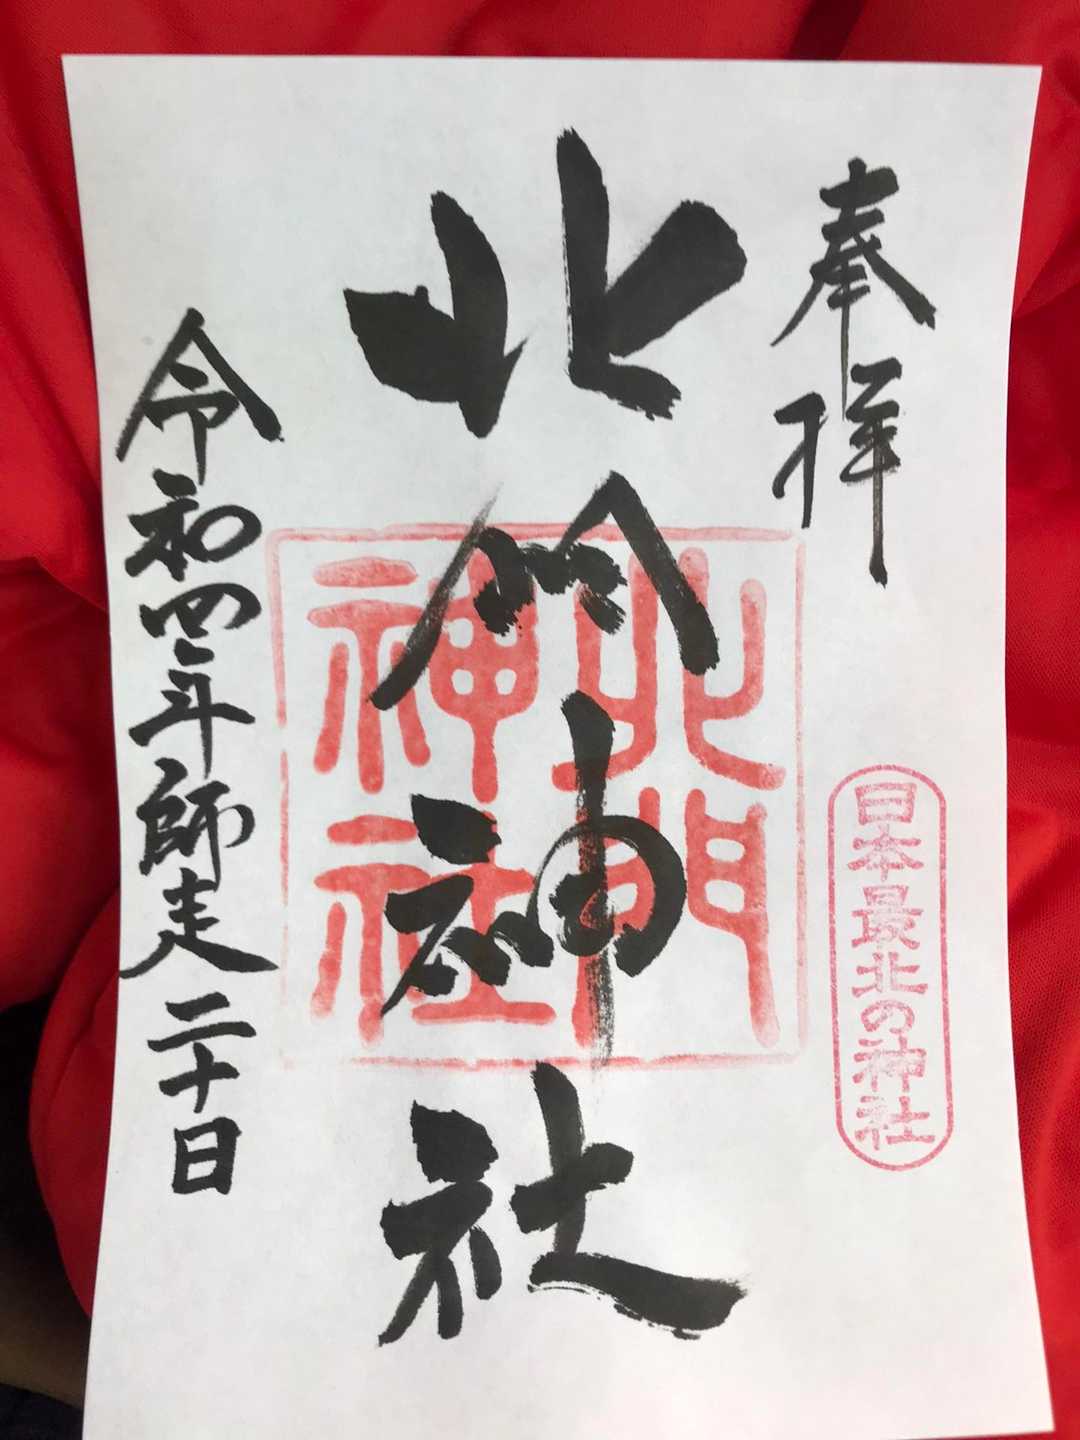 奉拝
日本最北の神社
北門神社
北門神社
令和四年師走二十日